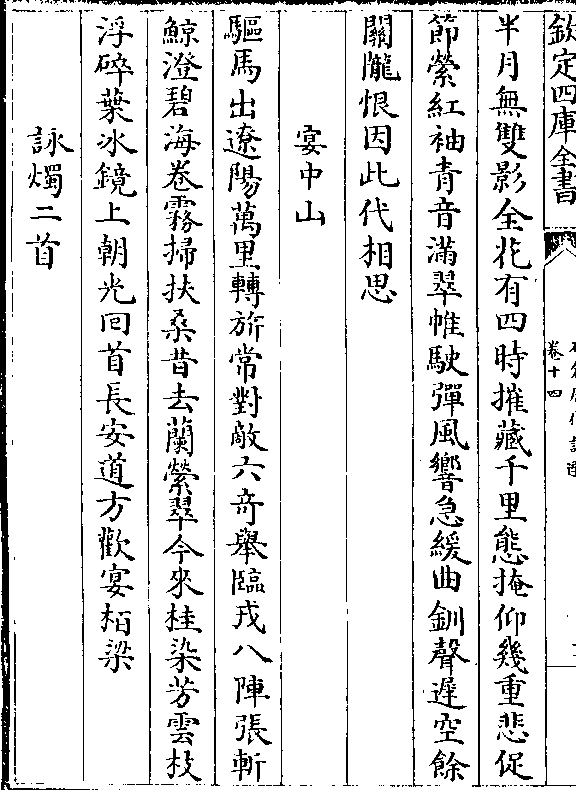 欽定四庫全書
卷十四
半月無雙影全花有四時摧藏千里態掩仰幾重悲促
節縈紅袖青音滿翠帷駛彈風響急緩曲釧聲遲空餘
關隴恨因此代相思
宴中山
驅馬出遼陽萬里轉旂常對敵六奇舉臨戎八陣張斬
鯨澄碧海卷霧掃扶桑昔去蘭縈翠今來桂染芳雲枝
浮碎葉冰鏡上朝光囘首長安道方歡宴栢梁
詠燭二首